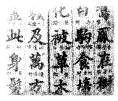 鳴鳳在樹
白駒食場
化被草木
及萬方
此身髮